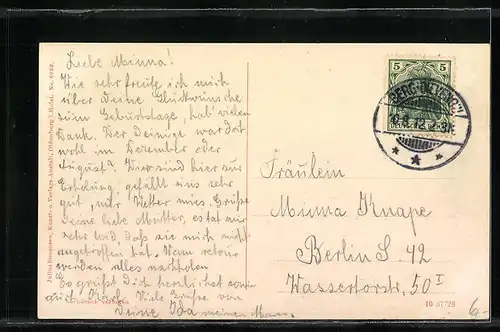 Liebe Minna!
Wie sehr freute ich mich
über Deine Glückwünsche
zum Geburtstage, hab' vielen
Dank. Der Deinige war doch
wohl im Dezember oder
August? Wir sind hier zur
Erholung, gefällt uns sehr
gut, nur Wetter mies. Grüße
Deine liebe Mutter, es tat mir
sehr leid, daß sie mich nicht
angetroffen hat, wenn retour
werden alles nachholen
Es grüßt Dich herzlichst
auf Viele Grüße von
Deine Ida meinem Mann
Julius Simonsen, Kunst- u. Verlags-Anstalt, Oldenburg i. Holst. No.
5
Fräulein
Minna Knape
Berlin S. 42
Wassertorstr. 50 I
10 57729
6.-